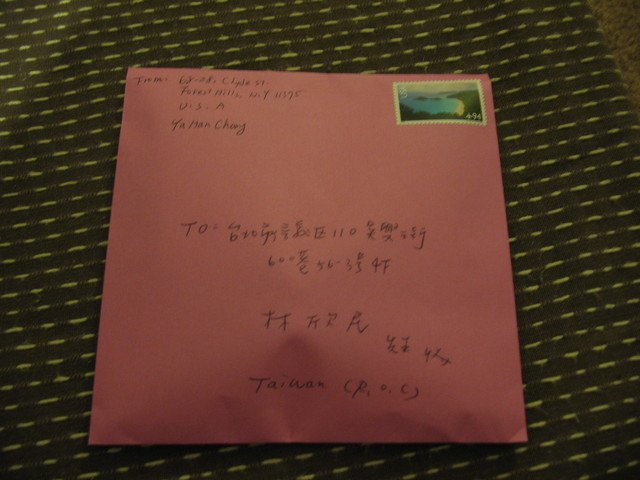 From: 68-28, Clyde St.
Forest Hills, N.Y 11375
U.S.A
Ya Han Chang
4.94
TO: 台北市信義區110吳興街
600巷56-3號4F
林欣
收
Taiwan (R.O.C)